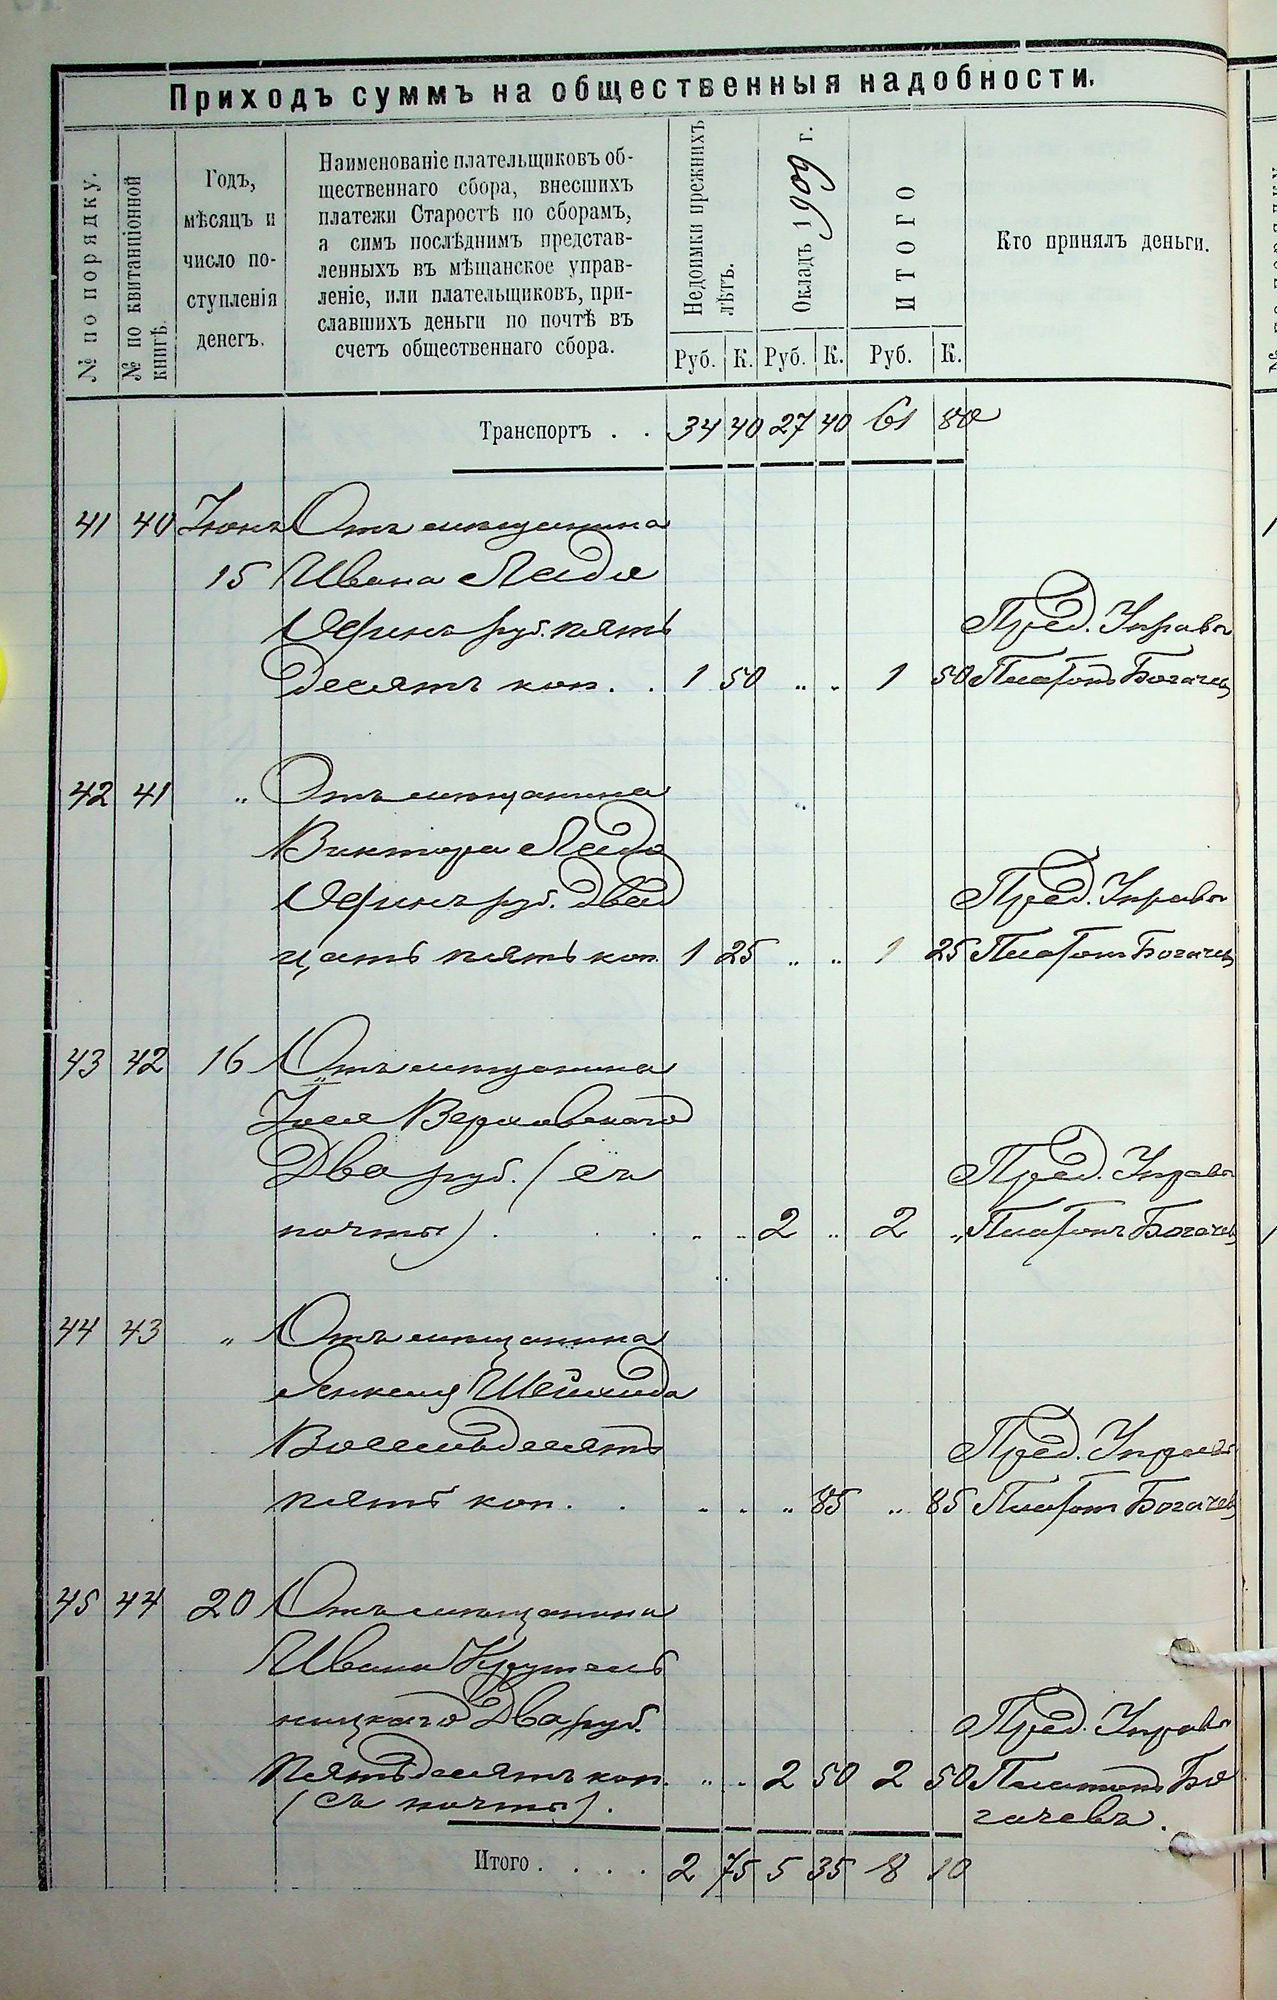 Приходъ суммъ на общественныя надобности.
№ по порядку.
№ по квитанціонной книгѣ.
Годъ,
мѣсяцъ и
число по-
ступленія
денегъ.
Наименованіе плательщиковъ об-
щественнаго сбора, внесшихъ
платежи Старостѣ по сборамъ,
а симъ послѣднимъ представ-
ленныхъ въ мѣщанское управ-
леніе, или плательщиковъ, при-
славшихъ деньги по почтѣ въ
счетъ общественнаго сбора.
Недоимки прежнихъ лѣтъ.
Окладъ 1909 г.
ИТОГО
Кто принялъ деньги.
Руб. К. Руб. К. Руб. К.
Транспортъ . . 34 40 27 40 61 80
41 40 Іюнь Отъ мѣщанина
15 Ивана
Одинъ руб. пять Пред. Управы
десятъ коп. . 1 50 „ „ 1 50 Платонъ Богачев
42 41 „ Отъ мѣщанина
Виктора
Одинъ руб. двад Пред. Управы
цать пять коп. 1 25 „ „ 1 25 Платонъ Богачев
43 42 16 Отъ мѣщанина
Верховскаго
Два руб. (съ Пред. Управы
почты) . . „ „ 2 „ 2 „ Платонъ Богачев
44 43 „ Отъ мѣщанина
Восемьдесятъ Пред. Управы
пять коп. . . „ „ „ 85 „ 85 Платонъ Богачев
45 44 20 Отъ мѣщанина
Ивана Крутель
ницкаго Два руб. Пред. Управы
пятьдесятъ коп. „ „ 2 50 2 50 Платонъ Бо
(съ почты). гачевъ.
Итого . . . . 2 75 5 35 8 10